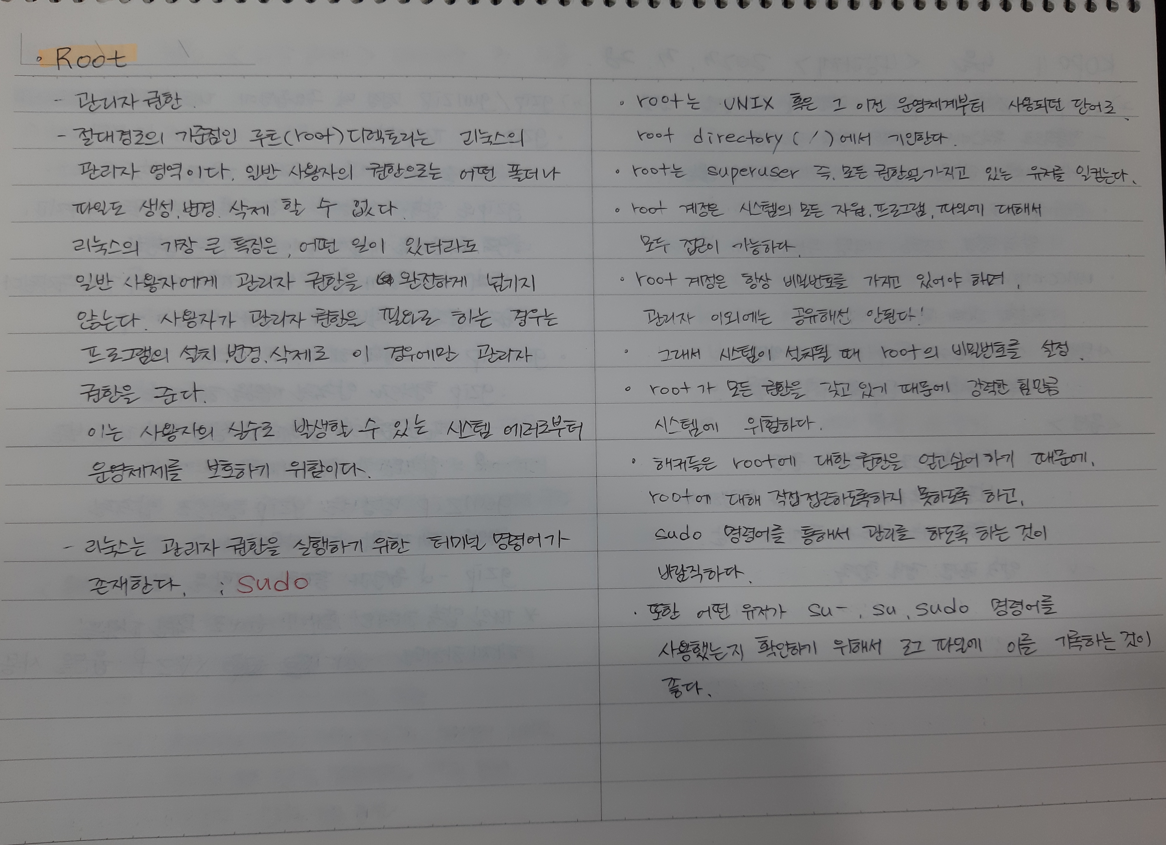 · Root
- 관리자 권한.
- 절대경로의 기준점인 루트(root) 디렉토리는 리눅스의
관리자 영역이다. 일반 사용자의 권한으로는 어떤 폴더나
파일도 생성, 변경, 삭제 할 수 없다.
리눅스의 가장 큰 특징은, 어떤 일이 있더라도
일반 사용자에게 관리자 권한을 완전하게 넘기지
않는다. 사용자가 관리자 권한은 필요로 하는 경우는
프로그램의 설치, 변경, 삭제로 이 경우에만 관리자
권한을 준다.
이는 사용자의 실수로 발생할 수 있는 시스템 에러로부터
운영체제를 보호하기 위함이다.
- 리눅스는 관리자 권한을 실행하기 위한 터미널 명령어가
존재한다. : sudo
· root는 UNIX 혹은 그 이전 운영체계부터 사용되던 단어로,
root directory ( / )에서 기인한다.
· root는 superuser 즉, 모든 권한을 가지고 있는 유저를 일컫는다.
· root 계정은 시스템의 모든 자원, 프로그램, 파일에 대해서
모두 접근이 가능하다.
· root 계정은 항상 비밀번호를 가지고 있어야 하며,
관리자 이외에는 공유해선 안된다!
· 그래서 시스템이 설치될 때 root의 비밀번호를 설정.
· root가 모든 권한을 갖고 있기 때문에 강력한 힘만큼
시스템에 위험하다.
· 해커들은 root에 대한 권한을 얻고싶어 하기 때문에,
root에 대해 직접 접근하도록하지 못하도록 하고,
sudo 명령어를 통해서 관리를 하도록 하는 것이
바람직하다.
· 또한 어떤 유저가 su-, su, sudo 명령어를
사용했는지 확인하기 위해서 로그 파일에 이를 기록하는 것이
좋다.